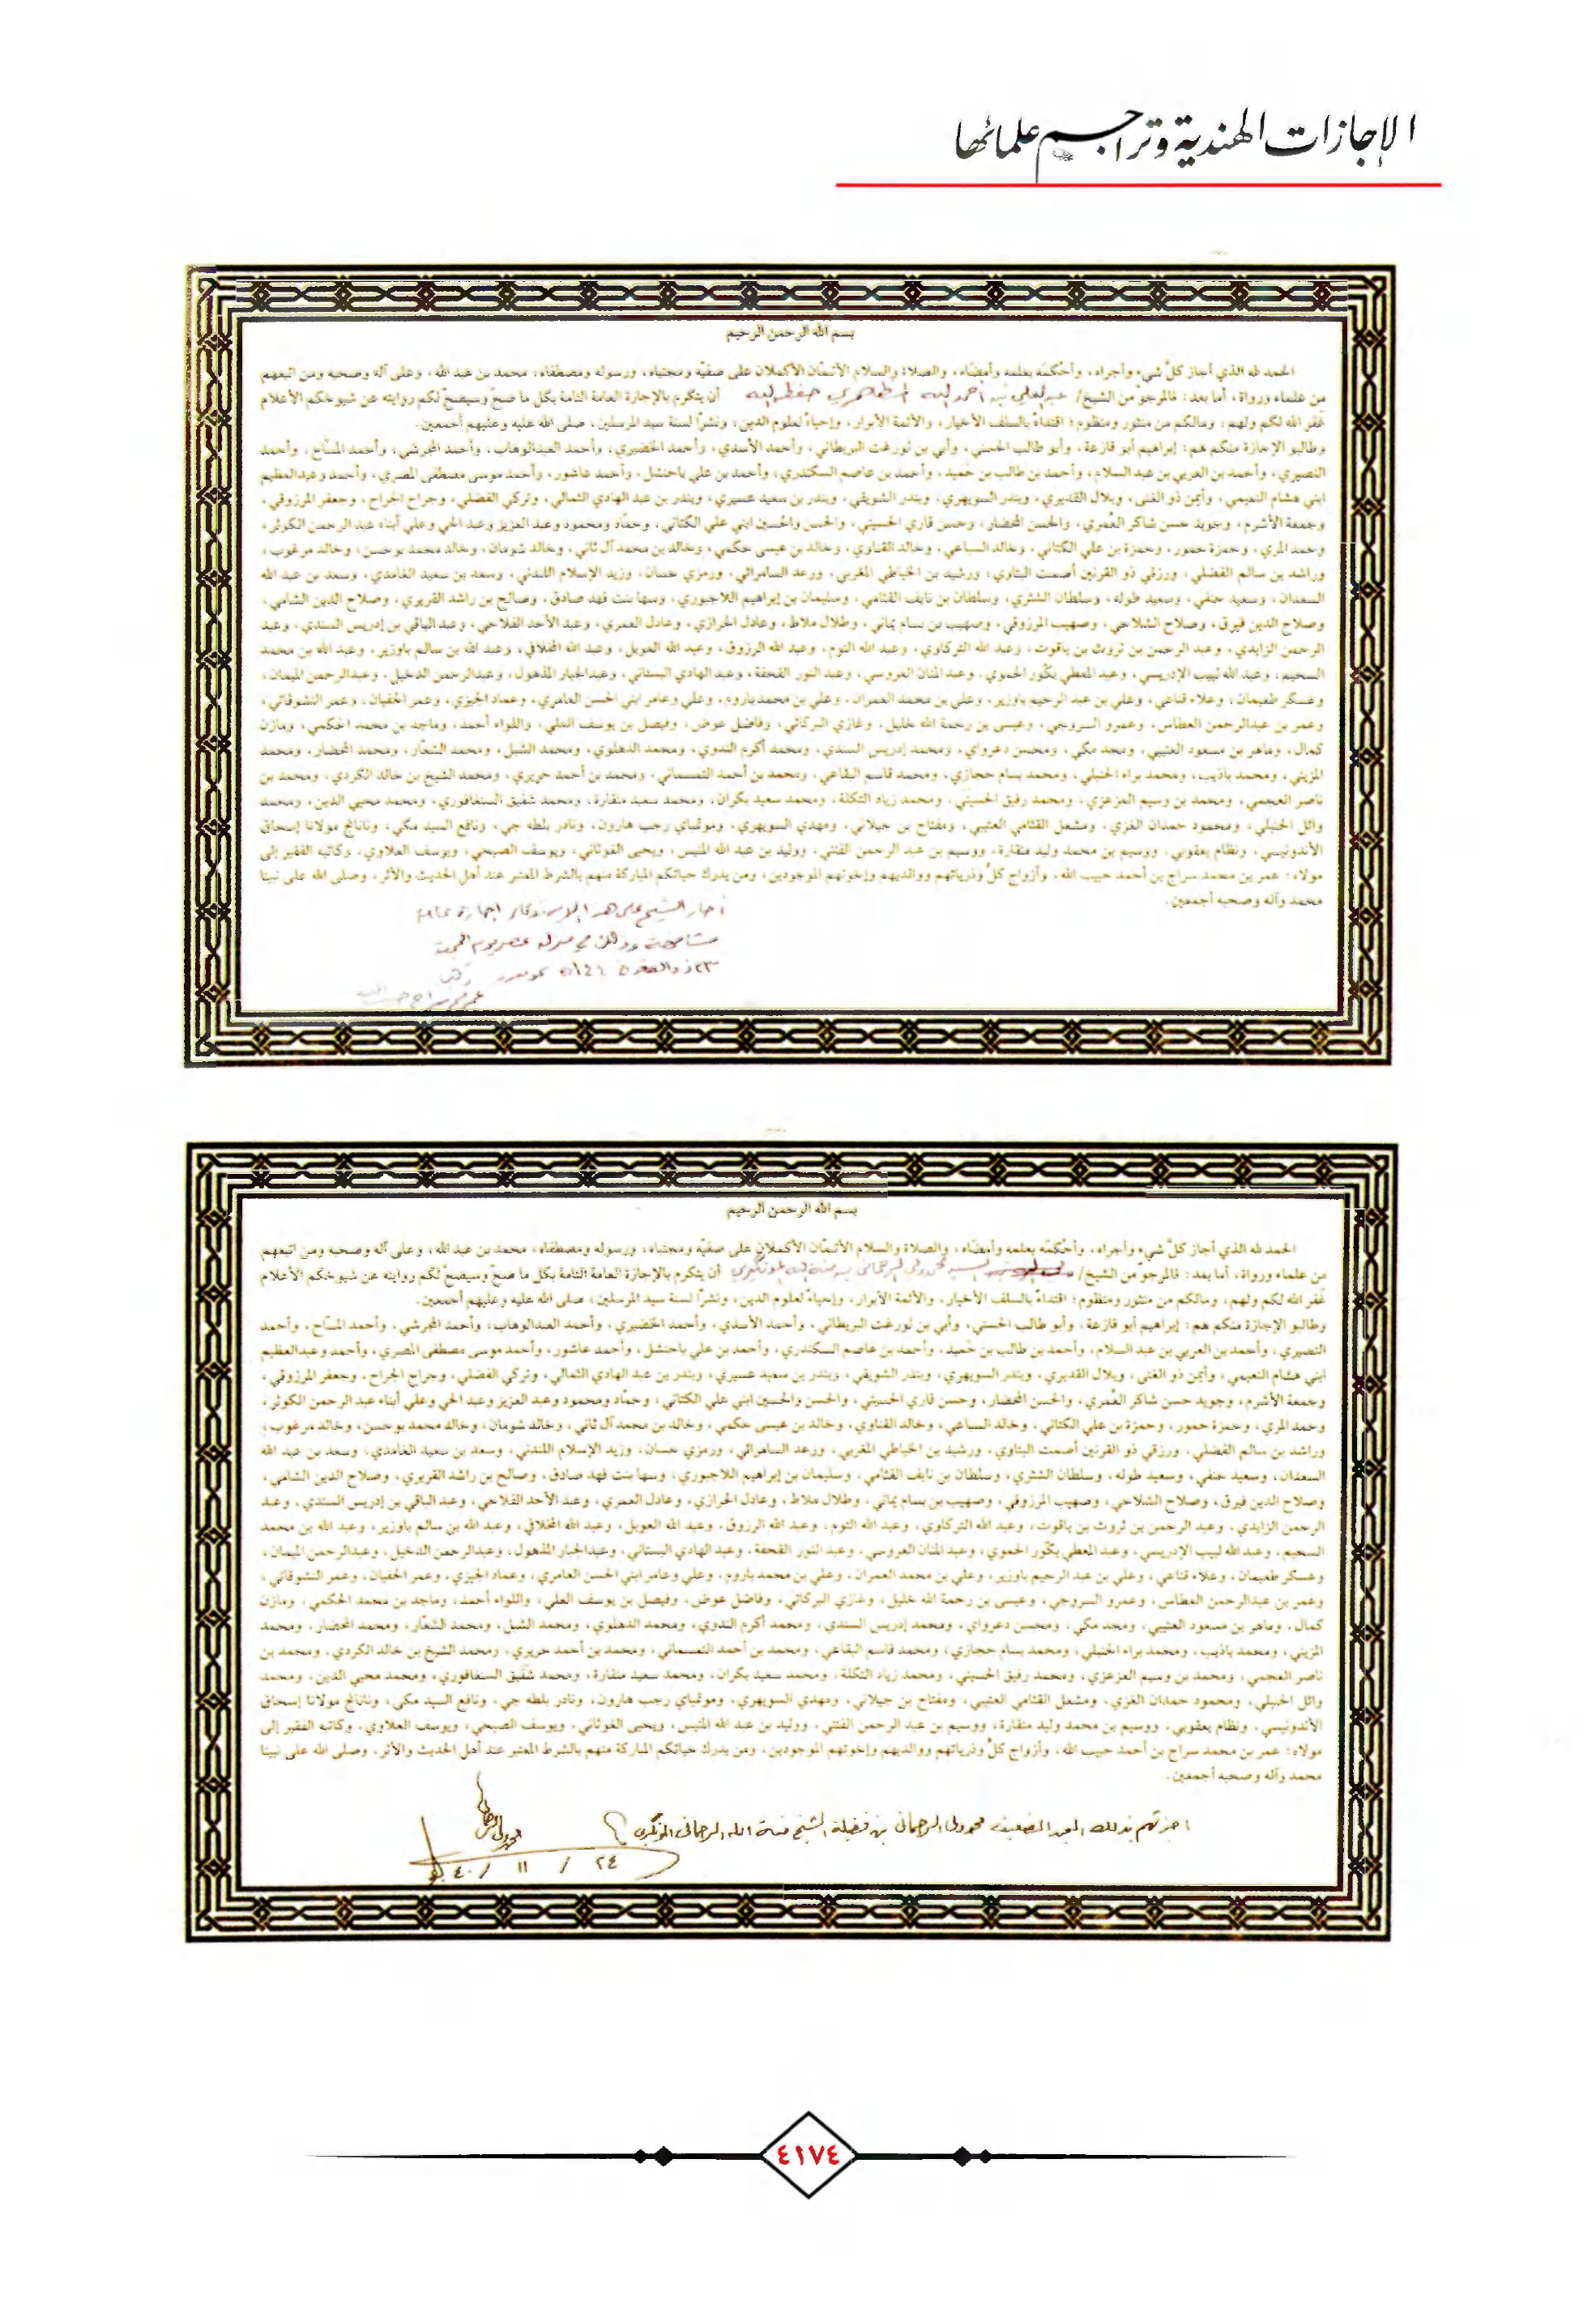 الإجازات الهندية وتراجم علمائها
بسم الله الرحمن الرحيم
الحمد لله الذي أجاز كلَّ شيء وأجراه، وأحْكمَه بعلمه وأمضاه، والصلاة والسلام الأتمّان الأكملان على صفيّه ومجتباه، ورسوله ومصطفاه؛ محمد بن عبد الله، وعلى آله وصحبه ومن اتبعهم
من علماء ورواة، أما بعد: فالمرجو من الشيخ/ عبدالعلي بن أحمد الله حفظه الله أن يتكرم بالإجازة العامة التامة بكل ما صحّ وسيصحّ لكم روايته عن شيوخكم الأعلام
غفر الله لكم ولهم، ومالكم من منثور ومنظوم؛ اقتداءً بالسلف الأخيار، والأئمة الأبرار، وإحياءً لعلوم الدين، ونشراً لسنة سيد المرسلين، صلى الله عليه وعليهم أجمعين.
وطالبو الإجازة منكم هم: إبراهيم أبو قازعة، وأبو طالب الحسني، وأبي بن نورغت البريطاني، وأحمد الأسدي، وأحمد الخضيري، وأحمد العبدالوهاب، وأحمد المجرشي، وأحمد المسّاح، وأحمد
النصيري، وأحمد بن العربي بن عبد السلام، وأحمد بن طالب بن حَميد، وأحمد بن عاصم السكندري، وأحمد بن علي باحنشل، وأحمد عاشور، وأحمد موسى مصطفى المصري، وأحمد وعبدالعظيم
ابني هشام النعيمي، وأيمن ذو الغنى، وبلال القديري، وبندر السويهري، وبندر الشويقي، وبندر بن سعيد عسيري، وبندر بن عبد الهادي الثمالي، وتركي الفضلي، وجراح الجراح، وجعفر المرزوقي،
وجمعة الأشرم، وجويد حسن شاكر العُمري، والحسن المحضار، وحسن قاري الحسيني، والحسن والحسين ابني علي الكتاني، وحمّاد ومحمود وعبد العزيز وعبد الحي وعلي أبناء عبد الرحمن الكوثر،
وحمد المري، وحمزة حمور، وحمزة بن علي الكتاني، وخالد السباعي، وخالد القناوي، وخالد بن عيسى حكمي، وخالد بن محمد آل ثاني، وخالد شومان، وخالد محمد بوحسن، وخالد مرغوب،
وراشد بن سالم الفضلي، ورزقي ذو القرنين أصمت البتاوي، ورشيد بن الخياطي المغربي، ورعد السامرائي، ورمزي حسان، وزيد الإسلام اللندني، وسعد بن سعيد الغامدي، وسعد بن عبد الله
السعدان، وسعيد حنفي، وسعيد طوله، وسلطان الشثري، وسلطان بن نايف القثامي، وسليمان بن إبراهيم اللاجبوري، وسها بنت فهد صادق، وصالح بن راشد القريري، وصلاح الدين الشامي،
وصلاح الدين فيرق، وصلاح الشلاحي، وصهيب المرزوقي، وصهيب بن بسام يماني، وطلال ملاط، وعادل الحرازي، وعادل العمري، وعبد الأحد الفلاحي، وعبد الباقي بن إدريس السندي، وعبد
الرحمن الزايدي، وعبد الرحمن بن ثروت بن ياقوت، وعبد الله التركاوي، وعبد الله التوم، وعبد الله الرزوق، وعبد الله العويل، وعبد الله المخلافي، وعبد الله بن سالم باوزير، وعبد الله بن محمد
السحيم، وعبد الله لبيب الإدريسي، وعبد المعطي بكّور الحموي، وعبد المنان العروسي، وعبد النور القحفة، وعبد الهادي البستاني، وعبدالجبار المذهول، وعبدالرحمن الدخيل، وعبدالرحمن الميمان،
وعسكر طعيمان، وعلاء قناعي، وعلي بن عبد الرحيم باوزير، وعلي بن محمد العمران، وعلي بن محمد باروم، وعلي وعامر ابني الحسن العامري، وعماد الجيزي، وعمر الحفيان، وعمر النشوقاتي،
وعمر بن عبدالرحمن العطاس، وعمرو السروجي، وعيسى بن رحمة الله خليل، وغازي البركاتي، وفاضل عوض، وفيصل بن يوسف العلي، واللواء أحمد، وماجد بن محمد الحكمي، ومازن
كمال، وماهر بن مسعود العتيبي، ومجد مكي، ومحسن دعرواي، ومحمد إدريس السندي، ومحمد أكرم الندوي، ومحمد الدهلوي، ومحمد الشبل، ومحمد الشعّار، ومحمد المحضار، ومحمد
المزيني، ومحمد باذيب، ومحمد براء الحنبلي، ومحمد بسام حجازي، ومحمد قاسم البقاعي، ومحمد بن أحمد التمسماني، ومحمد بن أحمد حريري، ومحمد الشيخ بن خالد الكردي، ومحمد بن
ناصر العجمي، ومحمد بن وسيم المزعزي، ومحمد رفيق الحسيني، ومحمد زياد التكلة، ومحمد سعيد بكران، ومحمد سعيد منقارة، ومحمد شفيق السنغافوري، ومحمد محيي الدين، ومحمد
وائل الحنبلي، ومحمود حمدان الغزي، ومشعل القثامي العتيبي، ومفتاح بن جيلاني، ومهدي السويهري، ومونمباي رجب هارون، ونادر بلطه جي، ونافع السيد مكي، ونانانج مولانا إسحاق
الأندونيسي، ونظام يعقوبي، ووسيم بن محمد وليد منقارة، ووسيم بن عبد الرحمن الفتني، ووليد بن عبد الله المنيس، ويحيى الغوثاني، ويوسف الصبحي، ويوسف العلاوي، وكاتبه الفقير إلى
مولاه: عمر بن محمد سراج بن أحمد حبيب الله، وأزواج كلٍّ وذرياتهم ووالديهم وإخوتهم الموجودين، ومن يدرك حياتكم المباركة منهم بالشرط المعتبر عند أهل الحديث والأثر، وصلى الله على نبينا
محمد وآله وصحبه أجمعين.
أجاز الشيخ على هذا الاستدعاء إجازة عامة
مشافهة وذلك في منزله عصر يوم الجمعة
٢٣ ذو القعدة
بسم الله الرحمن الرحيم
الحمد لله الذي أجاز كلَّ شيء وأجراه، وأحْكمَه بعلمه وأمضاه، والصلاة والسلام الأتمّان الأكملان على صفيّه ومجتباه، ورسوله ومصطفاه؛ محمد بن عبد الله، وعلى آله وصحبه ومن اتبعهم
من علماء ورواة، أما بعد: فالمرجو من الشيخ/ السيد محمد ولي الرحماني بن منة الله المونگيري أن يتكرم بالإجازة العامة التامة بكل ما صحّ وسيصحّ لكم روايته عن شيوخكم الأعلام
غفر الله لكم ولهم، ومالكم من منثور ومنظوم؛ اقتداءً بالسلف الأخيار، والأئمة الأبرار، وإحياءً لعلوم الدين، ونشراً لسنة سيد المرسلين، صلى الله عليه وعليهم أجمعين.
وطالبو الإجازة منكم هم: إبراهيم أبو قازعة، وأبو طالب الحسني، وأبي بن نورغت البريطاني، وأحمد الأسدي، وأحمد الخضيري، وأحمد العبدالوهاب، وأحمد المجرشي، وأحمد المسّاح، وأحمد
النصيري، وأحمد بن العربي بن عبد السلام، وأحمد بن طالب بن حَميد، وأحمد بن عاصم السكندري، وأحمد بن علي باحنشل، وأحمد عاشور، وأحمد موسى مصطفى المصري، وأحمد وعبدالعظيم
ابني هشام النعيمي، وأيمن ذو الغنى، وبلال القديري، وبندر السويهري، وبندر الشويقي، وبندر بن سعيد عسيري، وبندر بن عبد الهادي الثمالي، وتركي الفضلي، وجراح الجراح، وجعفر المرزوقي،
وجمعة الأشرم، وجويد حسن شاكر العُمري، والحسن المحضار، وحسن قاري الحسيني، والحسن والحسين ابني علي الكتاني، وحمّاد ومحمود وعبد العزيز وعبد الحي وعلي أبناء عبد الرحمن الكوثر،
وحمد المري، وحمزة حمور، وحمزة بن علي الكتاني، وخالد السباعي، وخالد القناوي، وخالد بن عيسى حكمي، وخالد بن محمد آل ثاني، وخالد شومان، وخالد محمد بوحسن، وخالد مرغوب،
وراشد بن سالم الفضلي، ورزقي ذو القرنين أصمت البتاوي، ورشيد بن الخياطي المغربي، ورعد السامرائي، ورمزي حسان، وزيد الإسلام اللندني، وسعد بن سعيد الغامدي، وسعد بن عبد الله
السعدان، وسعيد حنفي، وسعيد طوله، وسلطان الشثري، وسلطان بن نايف القثامي، وسليمان بن إبراهيم اللاجبوري، وسها بنت فهد صادق، وصالح بن راشد القريري، وصلاح الدين الشامي،
وصلاح الدين فيرق، وصلاح الشلاحي، وصهيب المرزوقي، وصهيب بن بسام يماني، وطلال ملاط، وعادل الحرازي، وعادل العمري، وعبد الأحد الفلاحي، وعبد الباقي بن إدريس السندي، وعبد
الرحمن الزايدي، وعبد الرحمن بن ثروت بن ياقوت، وعبد الله التركاوي، وعبد الله التوم، وعبد الله الرزوق، وعبد الله العويل، وعبد الله المخلافي، وعبد الله بن سالم باوزير، وعبد الله بن محمد
السحيم، وعبد الله لبيب الإدريسي، وعبد المعطي بكّور الحموي، وعبد المنان العروسي، وعبد النور القحفة، وعبد الهادي البستاني، وعبدالجبار المذهول، وعبدالرحمن الدخيل، وعبدالرحمن الميمان،
وعسكر طعيمان، وعلاء قناعي، وعلي بن عبد الرحيم باوزير، وعلي بن محمد العمران، وعلي بن محمد باروم، وعلي وعامر ابني الحسن العامري، وعماد الجيزي، وعمر الحفيان، وعمر النشوقاتي،
وعمر بن عبدالرحمن العطاس، وعمرو السروجي، وعيسى بن رحمة الله خليل، وغازي البركاتي، وفاضل عوض، وفيصل بن يوسف العلي، واللواء أحمد، وماجد بن محمد الحكمي، ومازن
كمال، وماهر بن مسعود العتيبي، ومجد مكي، ومحسن دعرواي، ومحمد إدريس السندي، ومحمد أكرم الندوي، ومحمد الدهلوي، ومحمد الشبل، ومحمد الشعّار، ومحمد المحضار، ومحمد
المزيني، ومحمد باذيب، ومحمد براء الحنبلي، ومحمد بسام حجازي، ومحمد قاسم البقاعي، ومحمد بن أحمد التمسماني، ومحمد بن أحمد حريري، ومحمد الشيخ بن خالد الكردي، ومحمد بن
ناصر العجمي، ومحمد بن وسيم المزعزي، ومحمد رفيق الحسيني، ومحمد زياد التكلة، ومحمد سعيد بكران، ومحمد سعيد منقارة، ومحمد شفيق السنغافوري، ومحمد محيي الدين، ومحمد
وائل الحنبلي، ومحمود حمدان الغزي، ومشعل القثامي العتيبي، ومفتاح بن جيلاني، ومهدي السويهري، ومونمباي رجب هارون، ونادر بلطه جي، ونافع السيد مكي، ونانانج مولانا إسحاق
الأندونيسي، ونظام يعقوبي، ووسيم بن محمد وليد منقارة، ووسيم بن عبد الرحمن الفتني، ووليد بن عبد الله المنيس، ويحيى الغوثاني، ويوسف الصبحي، ويوسف العلاوي، وكاتبه الفقير إلى
مولاه: عمر بن محمد سراج بن أحمد حبيب الله، وأزواج كلٍّ وذرياتهم ووالديهم وإخوتهم الموجودين، ومن يدرك حياتكم المباركة منهم بالشرط المعتبر عند أهل الحديث والأثر، وصلى الله على نبينا
محمد وآله وصحبه أجمعين.
أجزتهم بذلك العبد الضعيف محمد ولي الرحماني بن فضيلة الشيخ منة الله الرحماني المونگيري
٢٤ / ١١ / ٤٠
٤١٧٤